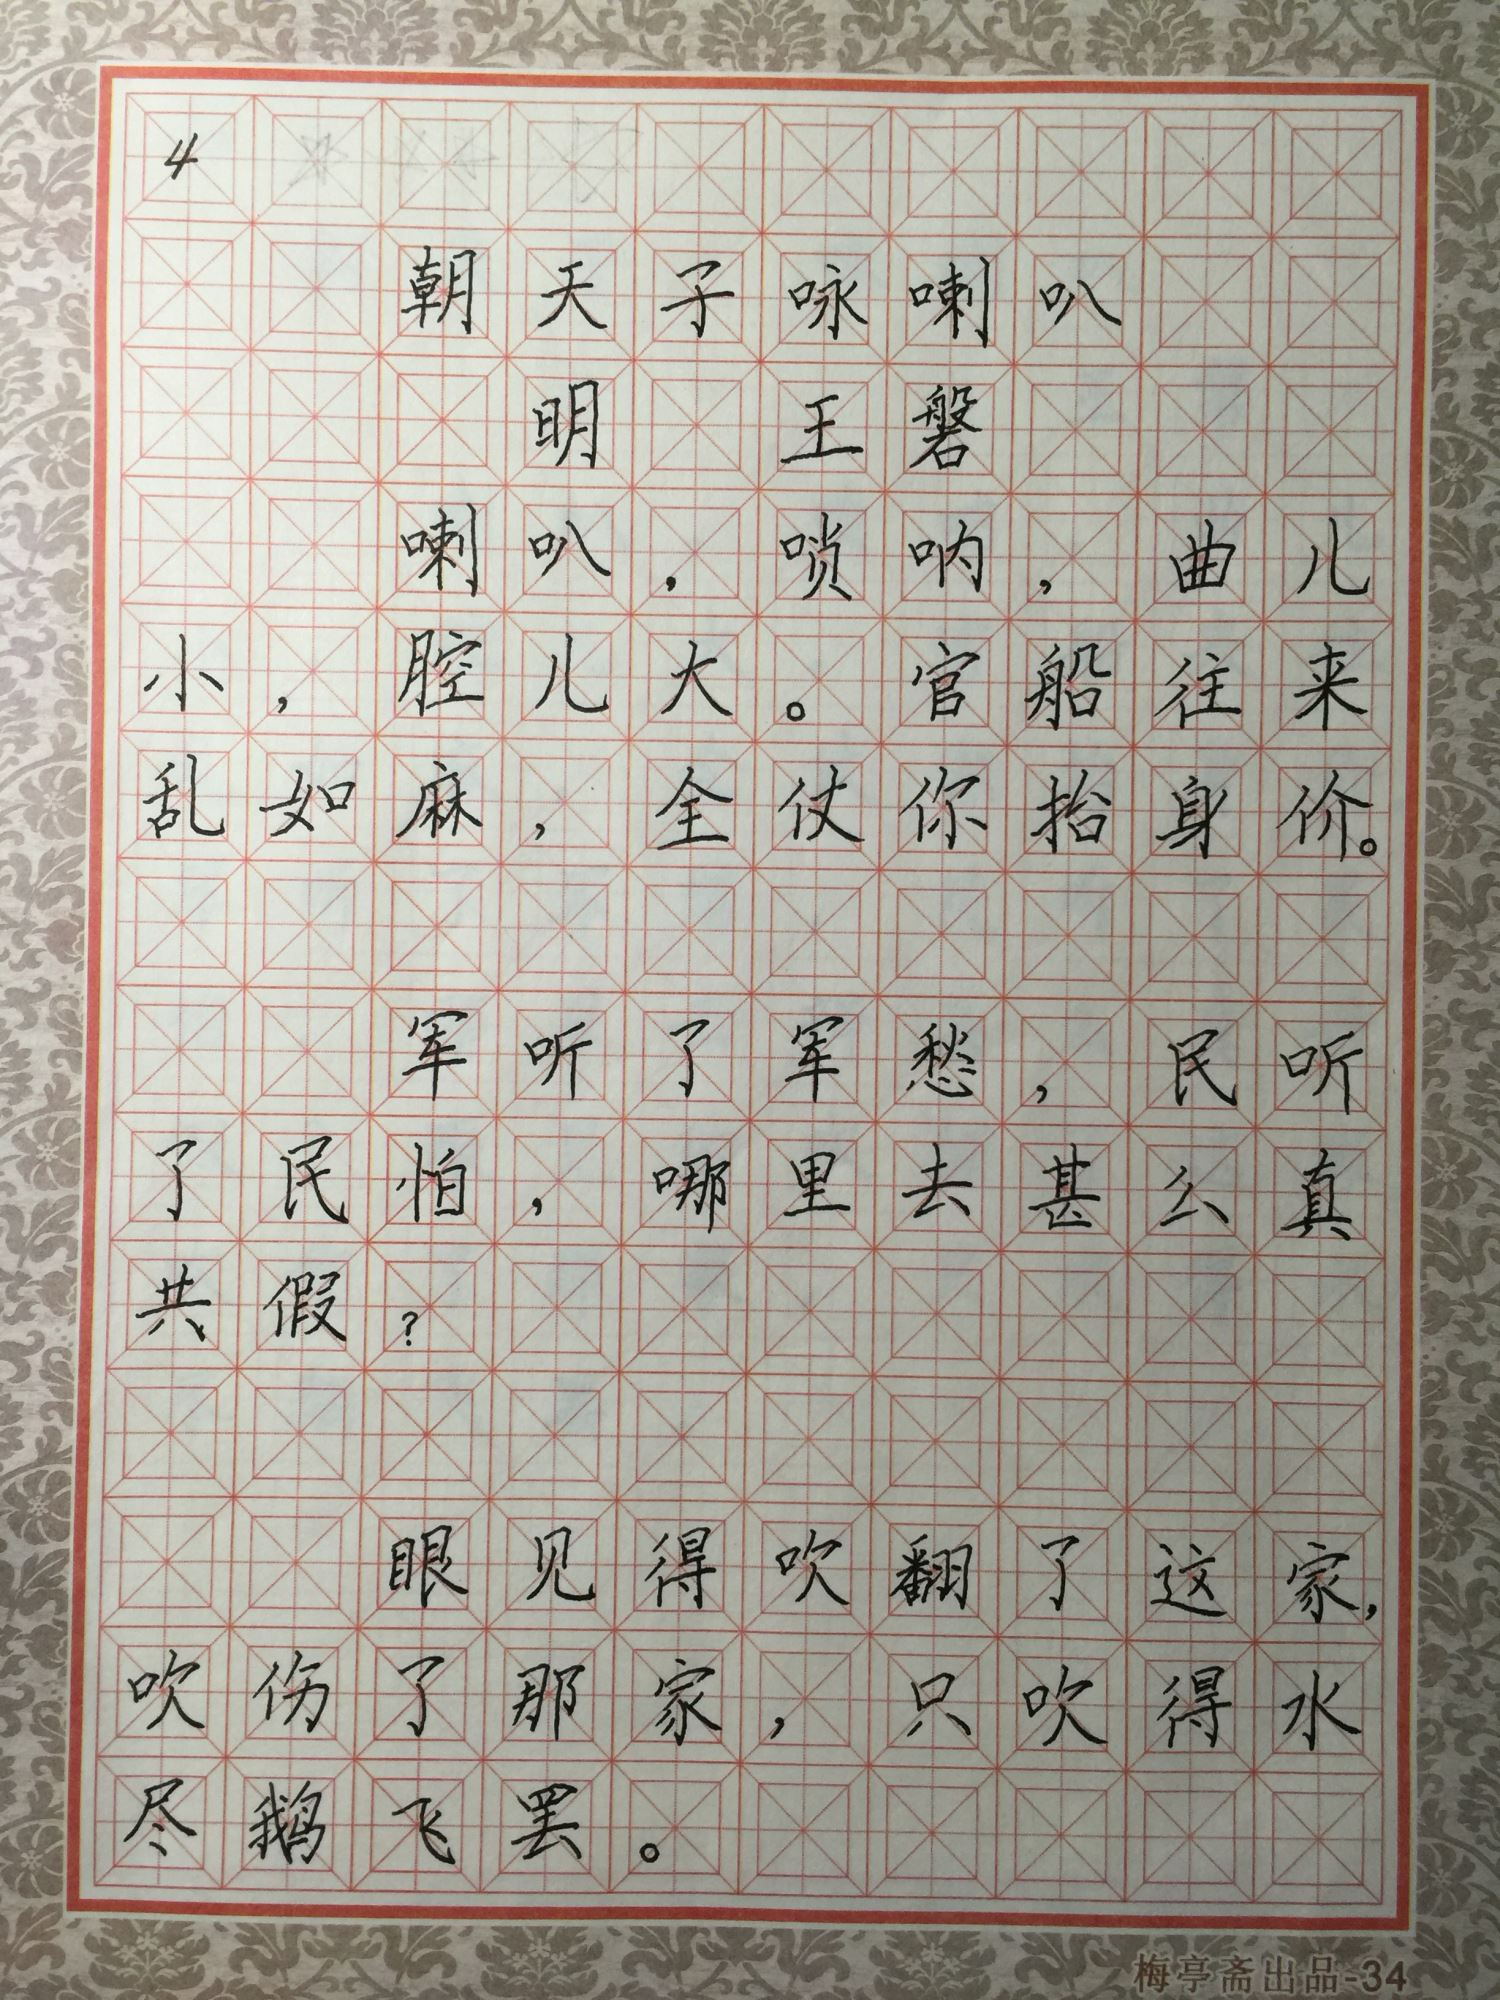 4
朝天子咏喇叭
明 王磐
喇叭，唢呐，曲儿
小，腔儿大。官船往来
乱如麻，全仗你抬身价。
军听了军愁，民听
了民怕，哪里去甚么真
共假？
眼见得吹翻了这家，
吹伤了那家，只吹得水
尽鹅飞罢。
梅亭斋出品-34